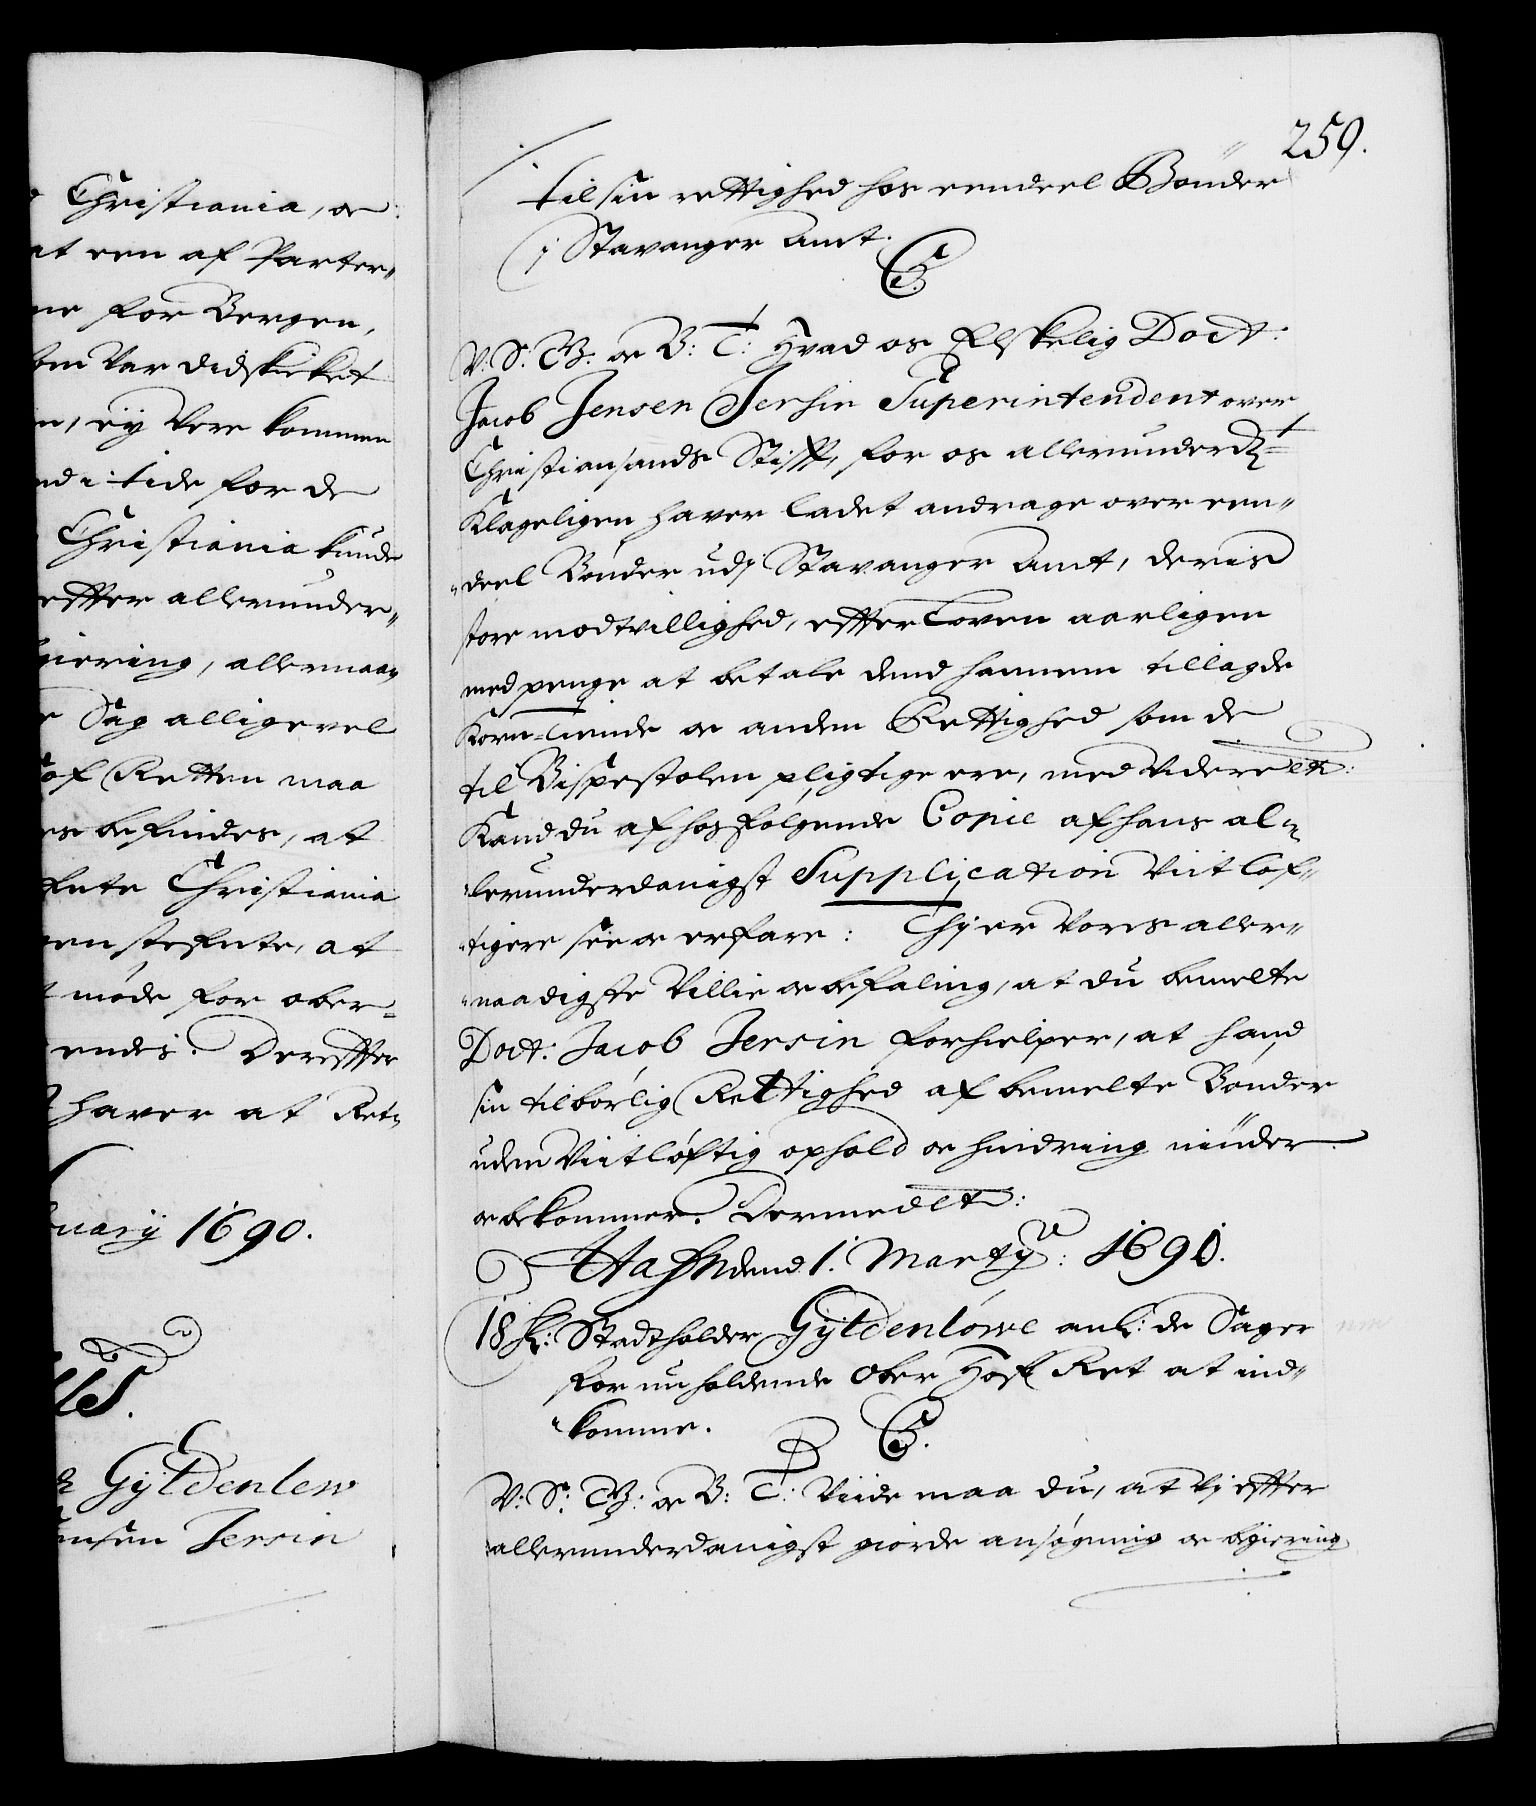 Christiania, oc
at een af Parter„
ne for Bergen,
som var didskicket
n, ey vere kommen
nd i tide for de
Christiania kunde
effter allerunder„
giering, allernaa„
Sag alligevel
af Retten maa
es befindes, at
Christiania
en stefnte, at
møde for ober=
endis. Dereffter
haver at Ret„
uarij 1690.
Gyldenlew
ensen Jersin
259.
til sin rettighed hos eendeel Bønder
i Stavanger Amt.
C5.
V: S: G: oc B: T: Hvad os Elskelig Doct:
Jacob Jensen Jersin Superintendent over
Christiansands Stifft, for os allerunderd:
Klageligen haver ladet andrage over een„
„deel Bønder udj Stavanger Amt, deris
store modtvillighed, effter Loven aarligen
med penge at betale dend hannem tillagde
Korn-Tiende oc anden Rettighed som de
til Bispestolen pligtige ere, med videre etc:
Kand du af hosfølgende Copie af hans al„
„lerunderdanigst Supplication viitløf„
„tigere see oc erfare: Thj er Vores aller„
„naadigste Villie oc befaling, at du bemelte
Doct: Jacob Jersin forhielper, at hand
sin tilbørlig Rettighed af bemelte Bønder
uden viitløftig ophold oc hindring niuder
oc bekommer. Dermed etc:
Hafn dend 1. Martij: 1690.
18 St: Stadtholder Gyldenløwe anl: de Sager
for nu holdende Ober Hof Ret at ind„
„komme.
C5.
V: S: G: oc B: T: Viide maa du, at Vj effter
allerunderdanigst giorde ansøgning oc begiering